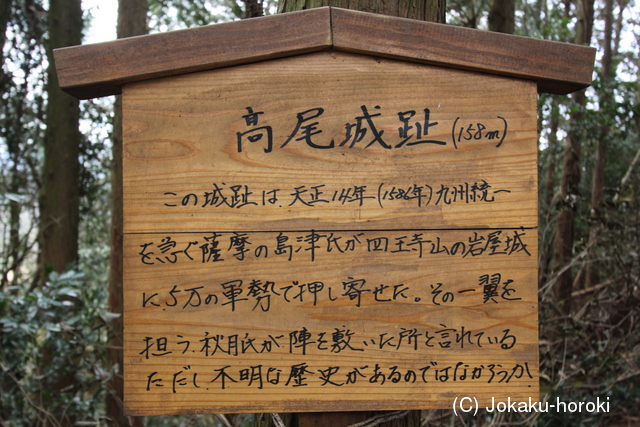 高尾城趾(158m)
この城趾は、天正14年(1586年)九州統一
を急ぐ薩摩の島津氏が四王寺山の岩屋城
に、5万の軍勢で押し寄せた。その一翼を
担う、秋月氏が陣を敷いた所と言れている
ただし、不明な歴史があるのではなかろうか
(C) Jokaku-horoki